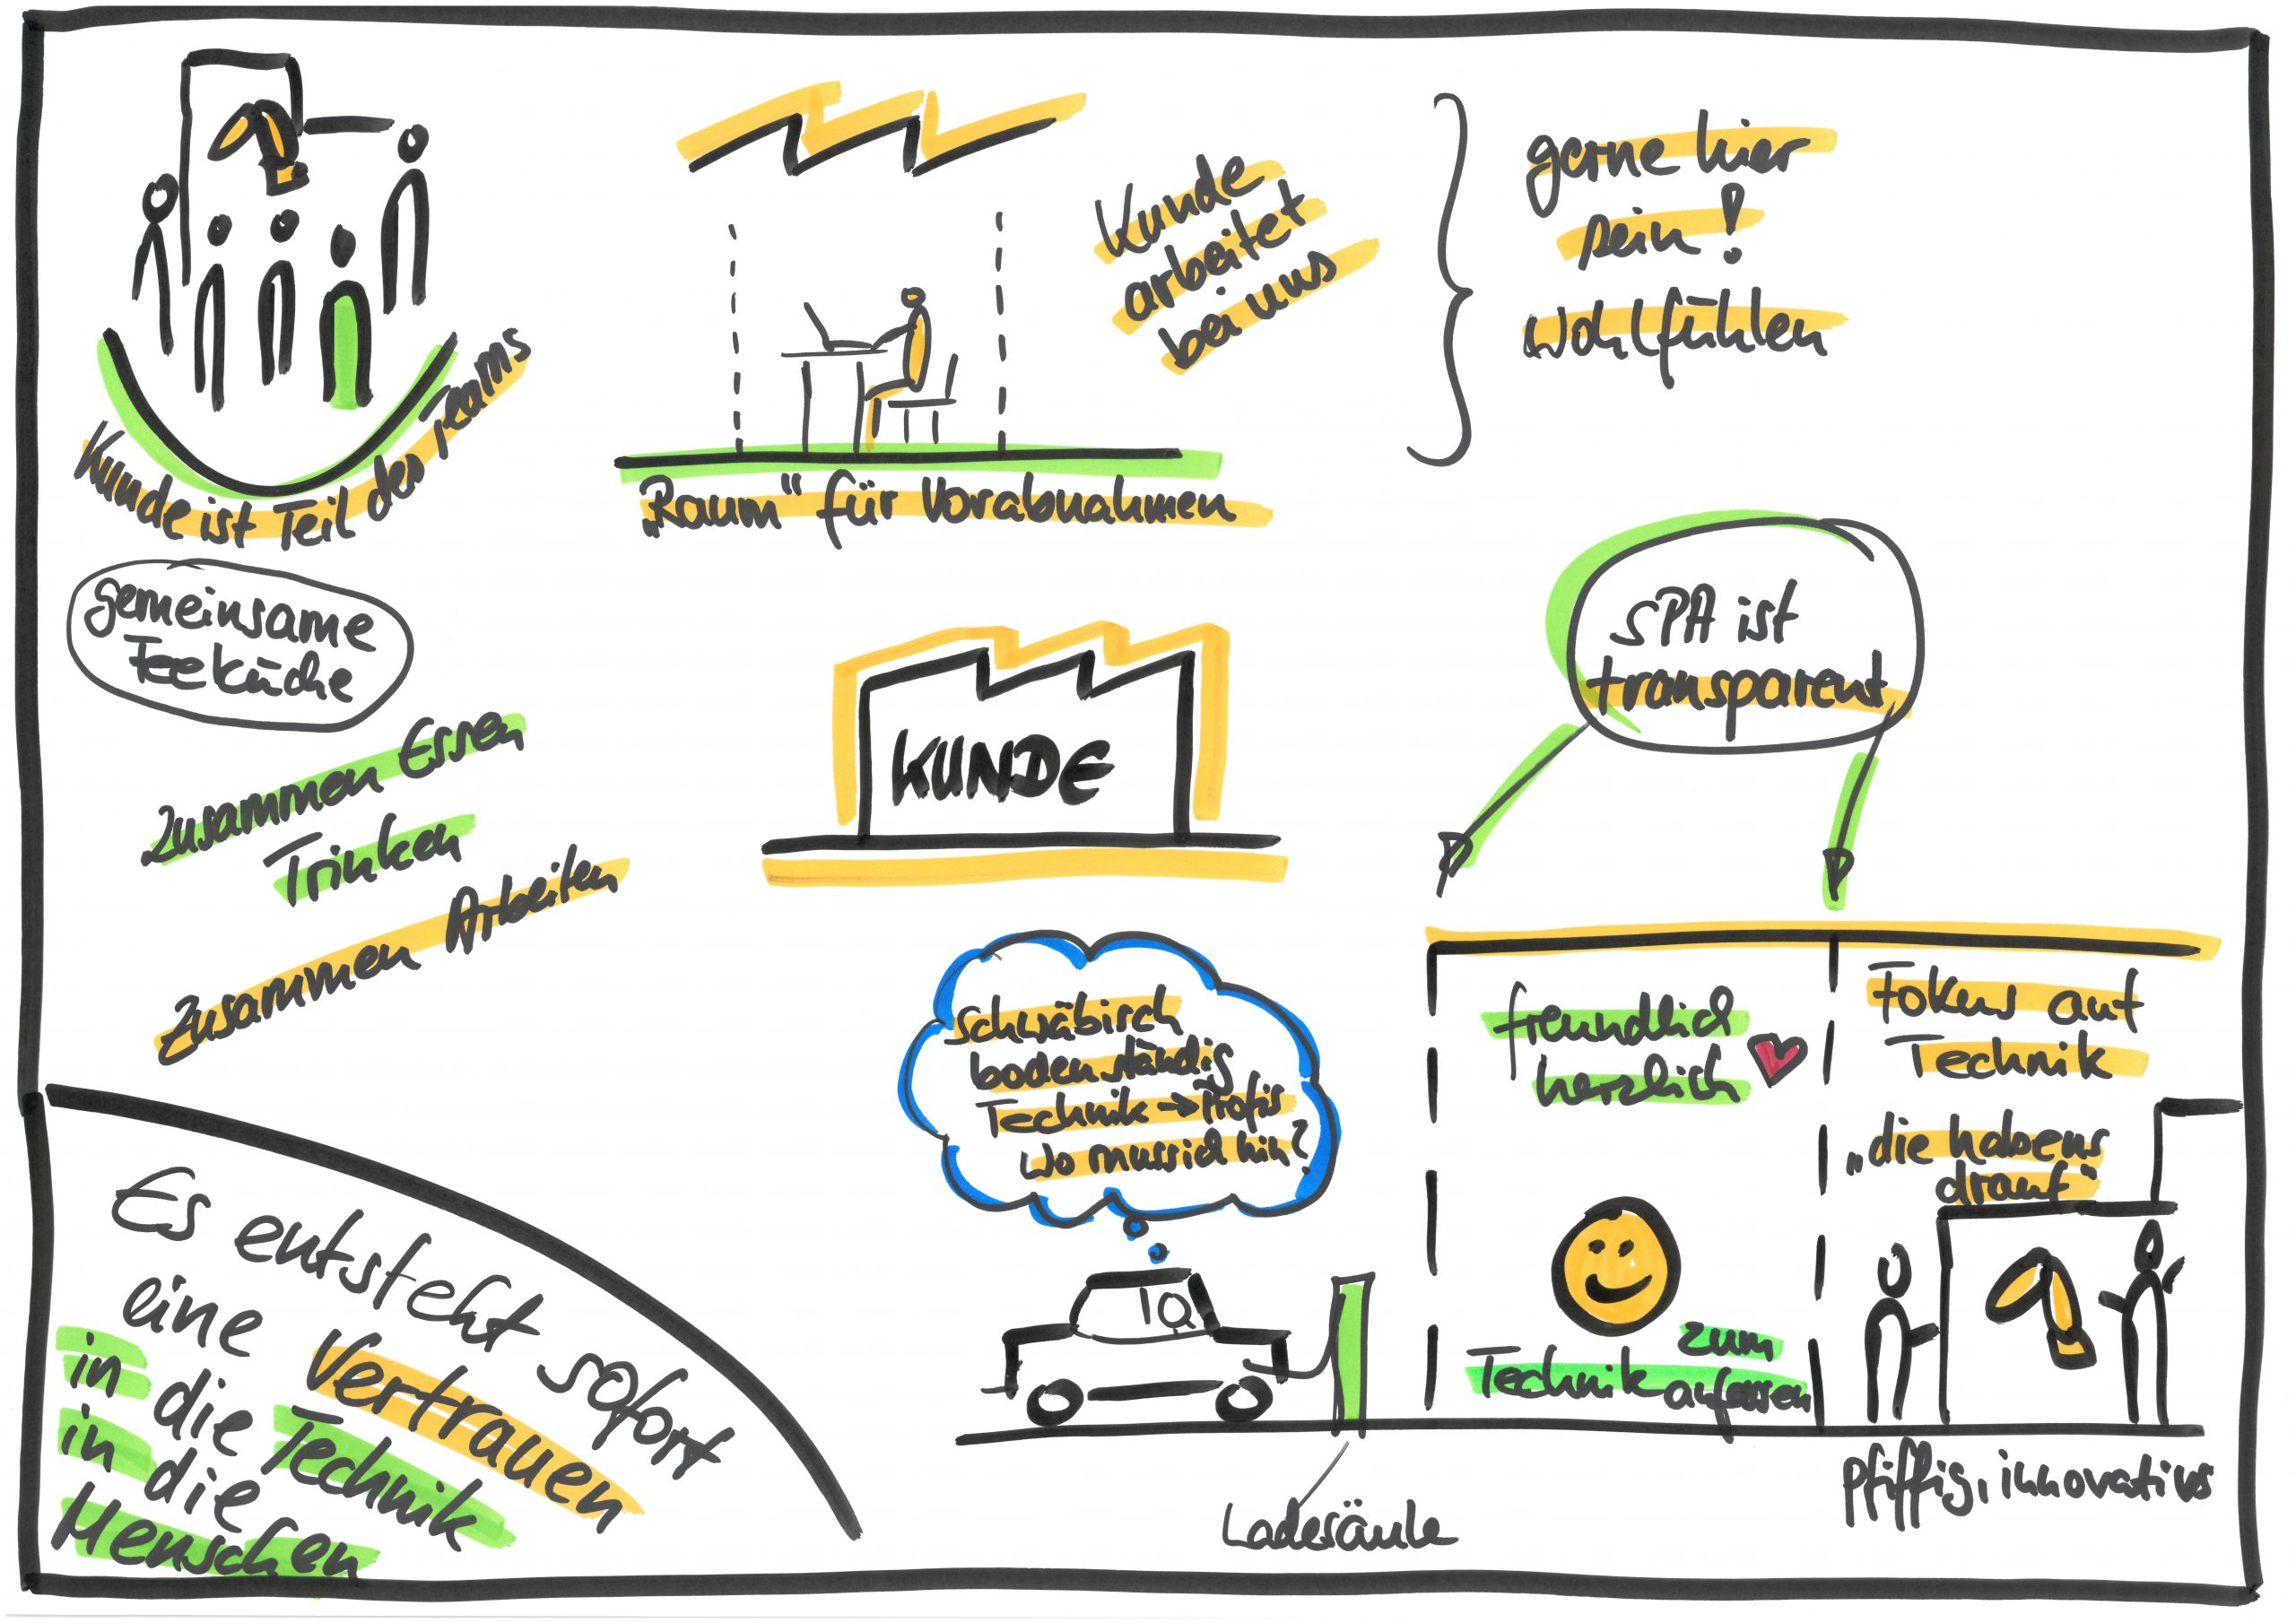 Kunde ist Teil des Teams
Kunde
arbeitet
bei uns
gerne hier
sein!
wohlfühlen
„Raum“ für Vorabnahmen
gemeinsame
Teeküche
Zusammen Essen
Trinken
Zusammen Arbeiten
KUNDE
SPA ist
transparent
Schwäbisch
bodenständig
Technik → Profis
Wo muss ich hin?
freundlich
herzlich
Fokus auf
Technik
„die habens
drauf“
zum
Technik anfassen
pfiffig, innovativ
Ladesäule
Es entsteht sofort
eine Vertrauen
in die Technik
in die
Menschen